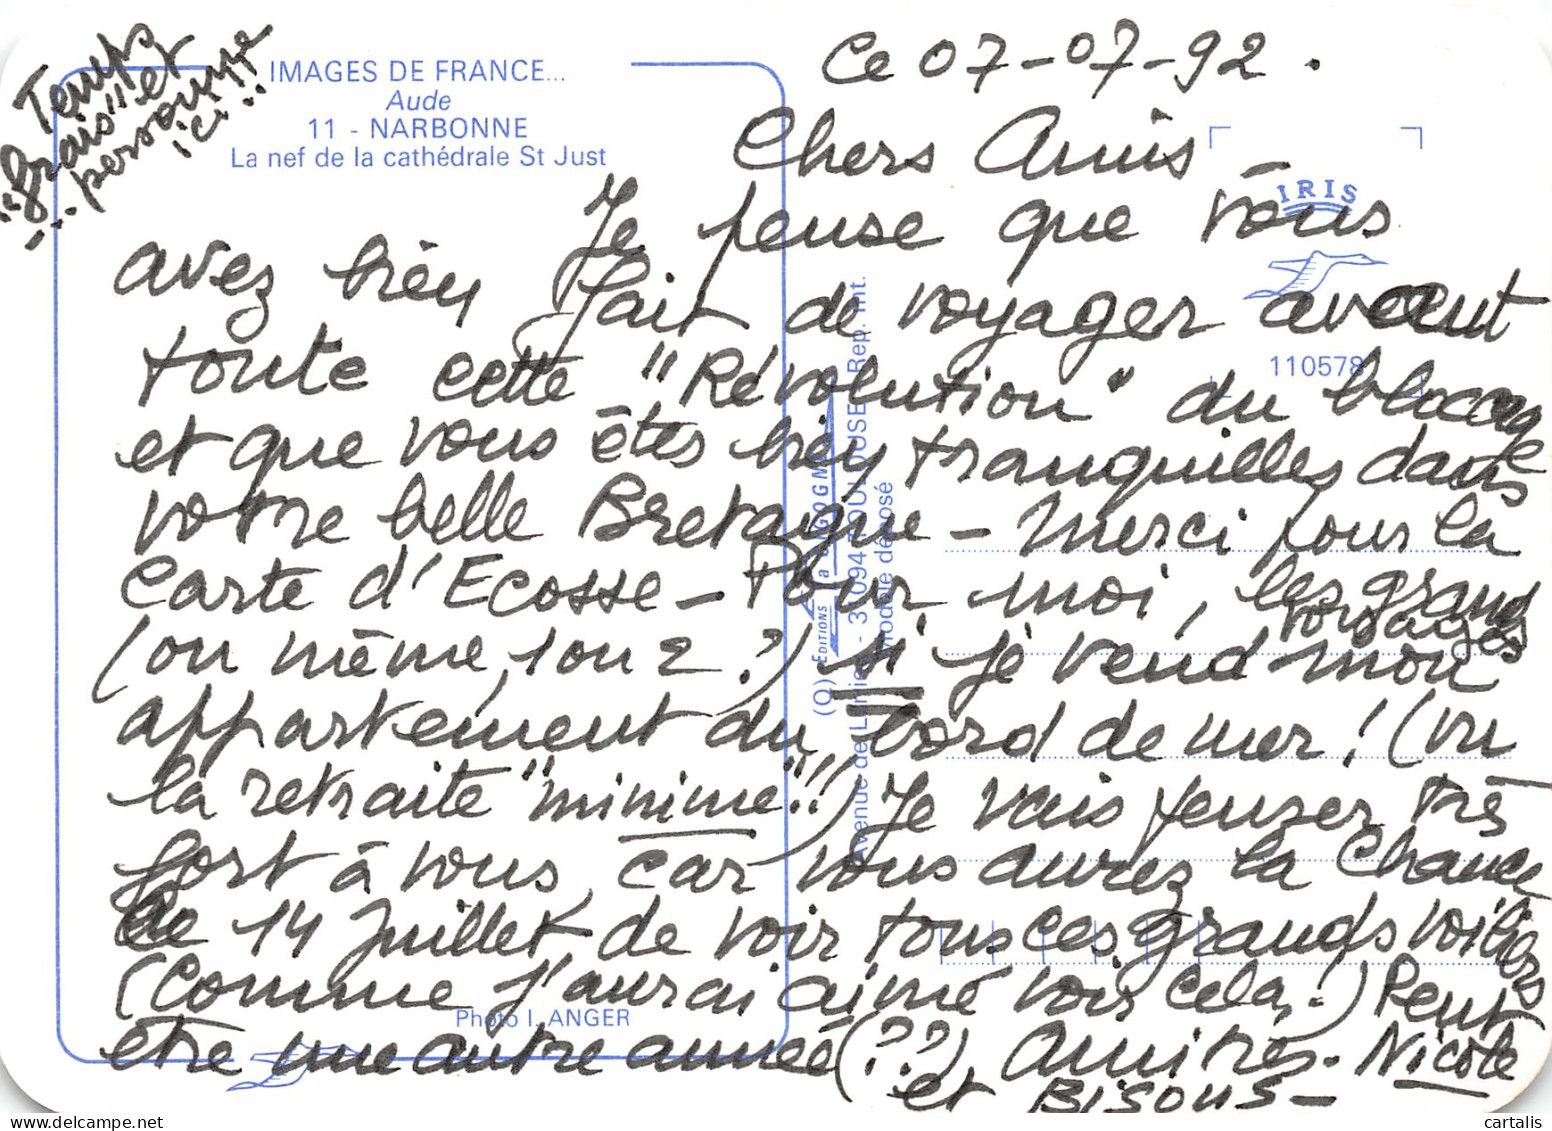 Temps
"frais" et
... personne
ici !!
IMAGES DE FRANCE...
Aude
11 - NARBONNE
La nef de la cathédrale St Just
Ce 07-07-92.
Chers Amis
Je pense que vous
avez bien fait de voyager avant
toute cette "Révolution" du blocage
et que vous êtes bien tranquilles dans
votre belle Bretagne - Merci pour la
Carte d'Ecosse - Pour moi, les grands voyages
(ou même, 1 ou 2 ?) si je vend mon
appartement du bord de mer ! (vu
la retraite "minime"!!) Je vais penser très
fort à vous, car vous aurez la chance
Le 14 Juillet de voir tous ces grands voiliers
(Comme j'aurai aimé voir cela !) Peut
être une autre année (??) Amitiés. Nicole
et BISOUS -
IRIS
110578
Editions La CIGOGNE
Rep. int.
Photo I. ANGER
cartalis
www.delcampe.net